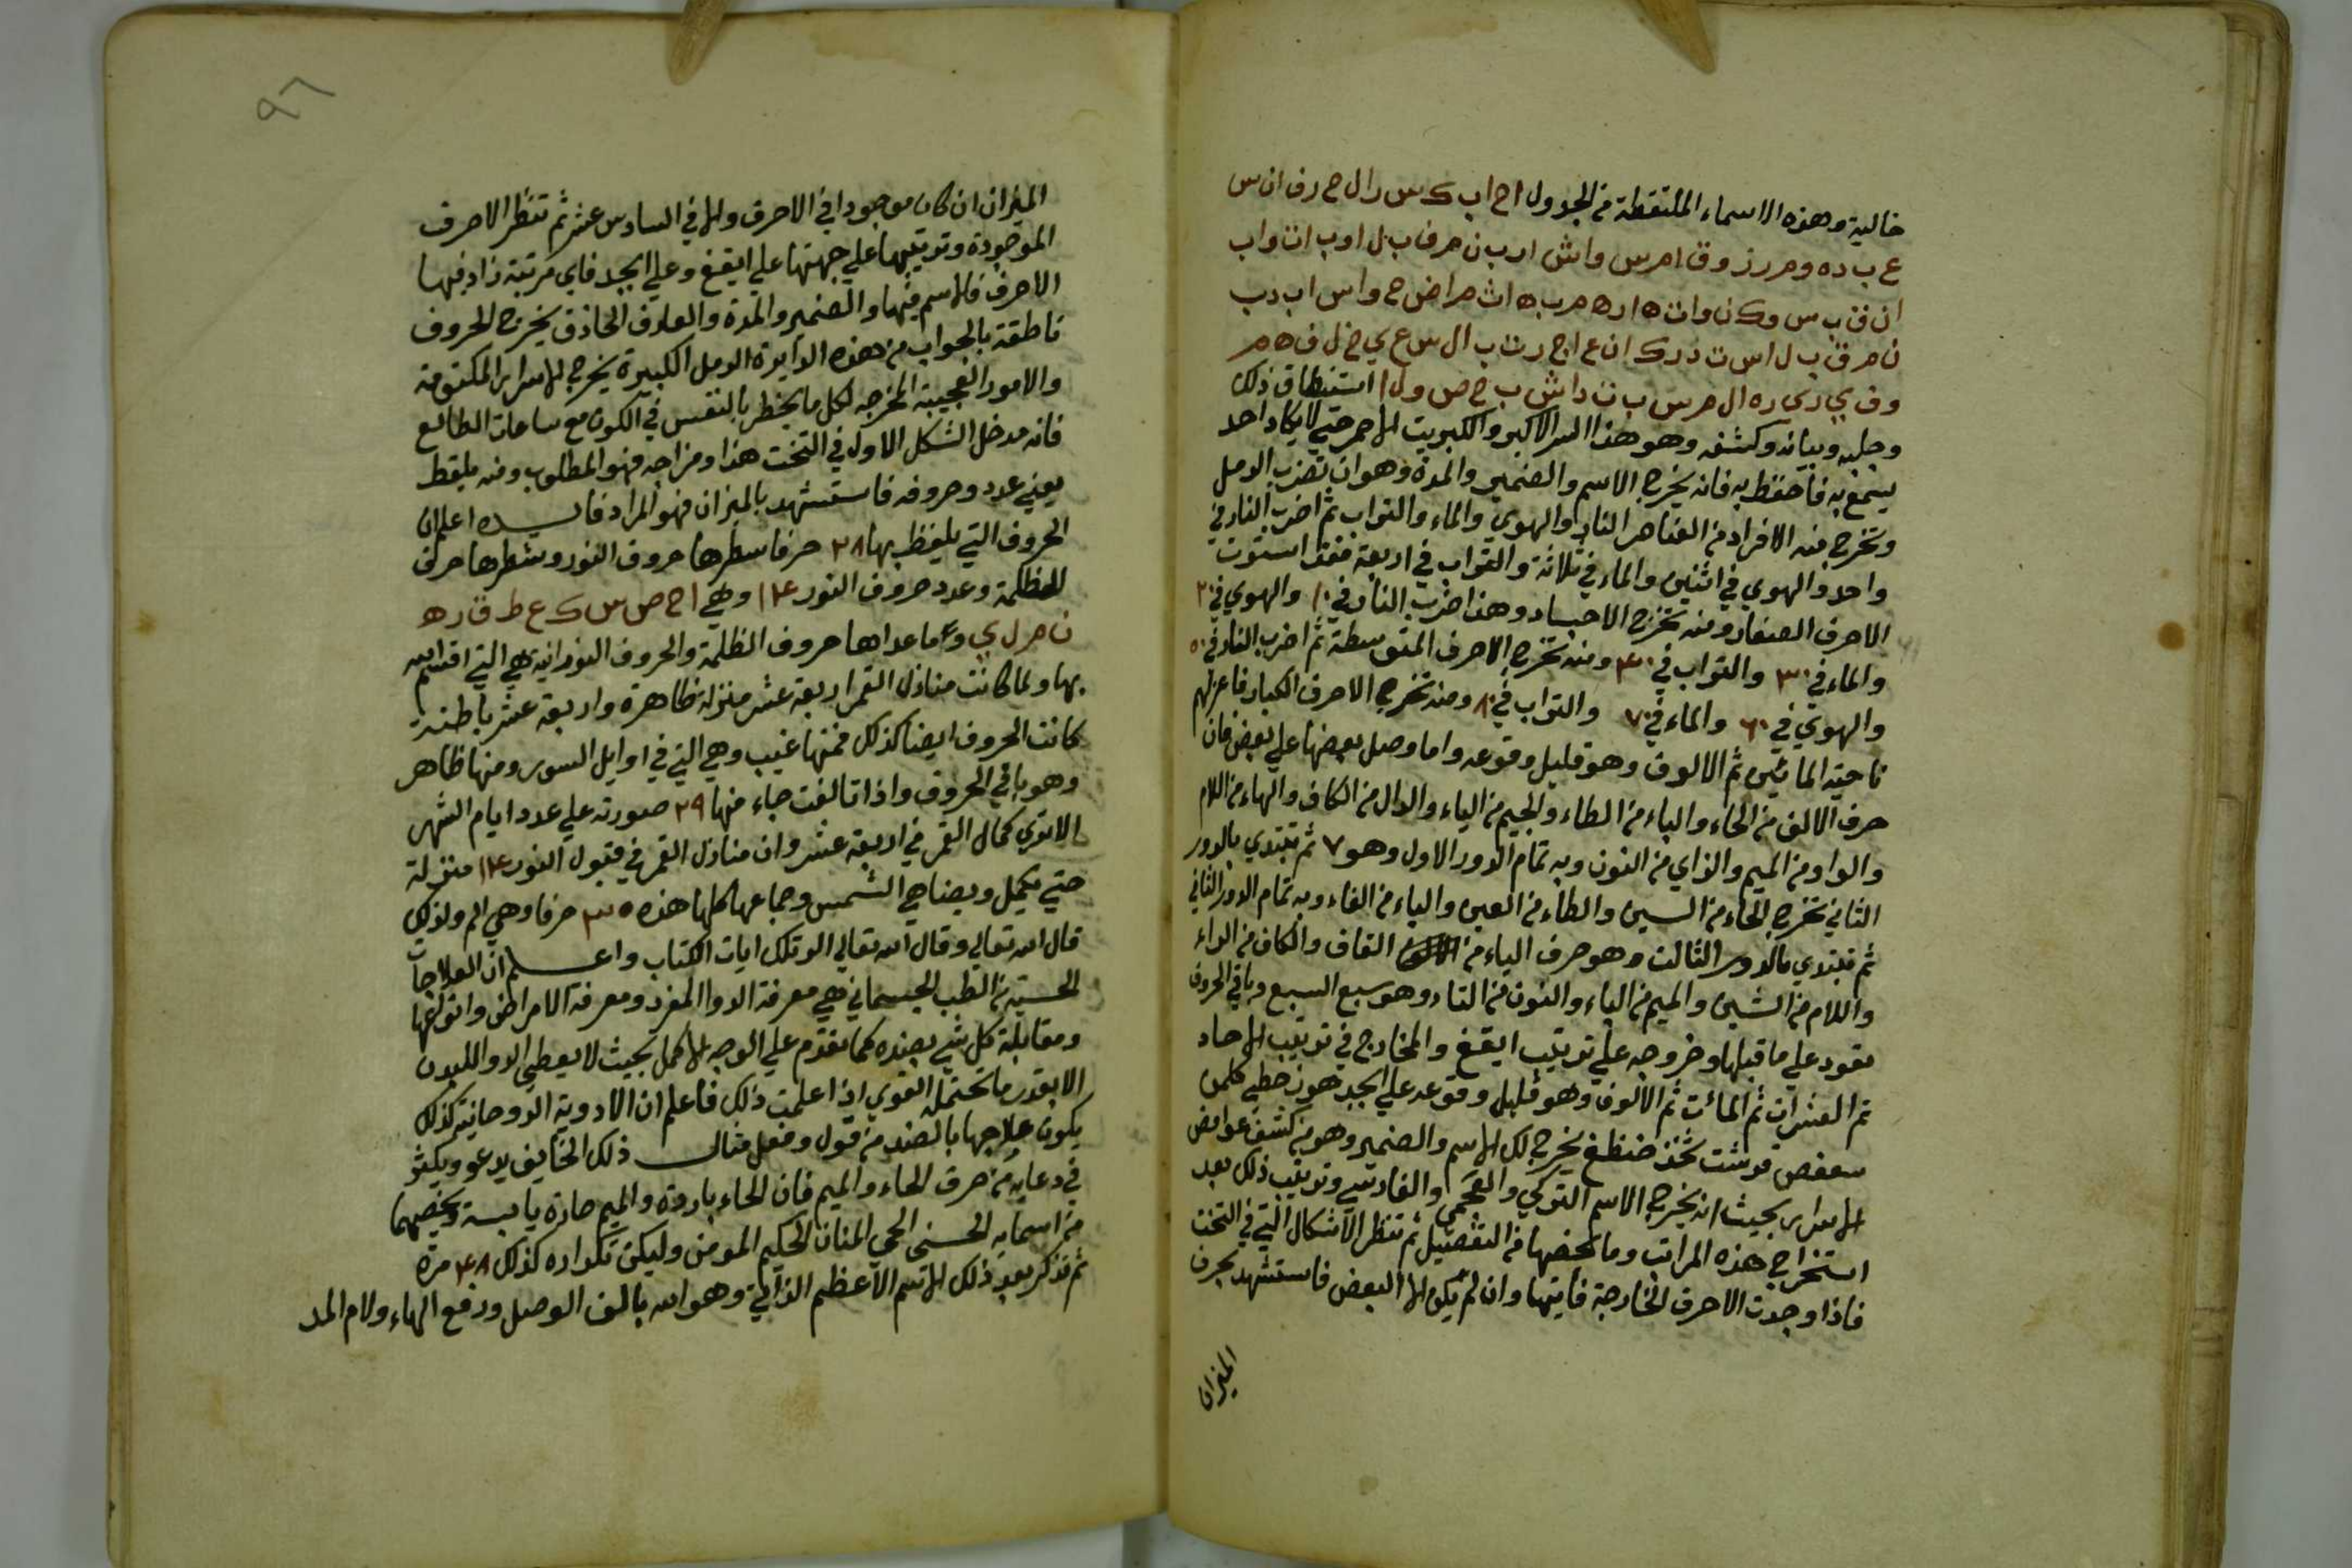 خالية وهذه الاسماء الملتقطة من الجدول ا ح ا ب ك س ر ا ل ح ر ف ا ن س
ع ب د ه و م ر ز و ق ا م ر س و ا ش ا ر ب ن م ر ف ب ل ا و ب ا ن و ا ب
وجلبه وبيانه وكشفه وهو هذا السر الاكبر والكبريت الاحمر حتي لا يكاد احد
يسمع به فاحتفظ به فانه يخرج الاسم والضمير والمدة وهو ان تضرب الرمل
وتخرج منه الافراد من العناهر النار والهوي والماء والتراب ثم اضرب النار في
واحد والهوي في اثنين والماء في ثلاثة والتراب في اربعة فقد استوت
الاحرف الصغار ومنه تخرج الاجساد وهذا ضرب النار في ١٠ والهوي في ٢٠
والماء في ٣٠ والتراب في ٤٠ ومنه تخرج الاحرف المتوسطة ثم اضرب النار في ٥٠
والهوي في ٦٠ والماء في ٧٠ والتراب في ٨٠ ومنه تخرج الاحرف الكبار فاعزلهم
ناحية المايئين ثم الالوف وهو قليل وقوعه واما وصل بعضها علي بعض فان
حرف الالف من الحاء والباء من الطاء والجيم من الياء والدال من الكاف والهاء من اللام
والواو من الميم والزاي من النون وبه تمام الدور الاول وهو ٧ ثم تبتدي بالدور
الثاني تخرج الحاء من السين والطاء من العين والياء من الفاء وبه تمام الدور الثاني
ثم تبتدي بالدور الثالث وهو حرف الياء من القاف والكاف من الراء
واللام من الشين والميم من الياء والنون من التاء وهو سبع السبع وباقي الحروف
تعود علي ما قبلها وخروجه علي ترتيب ايقغ والمخارج في ترتيب الاحاد
ثم العشرات ثم المائت ثم الالوف وهو قليل وقوعه علي ابجد هوز حطي كلمن
سعفص قرشت ثخذ ضظغ يخرج لك الاسم والضمير وهو من كشف غوامض
الاسرار بحيث انه يخرج الاسم التركي والعجمي والفارسي وترتيب ذلك بعد
استخراج هذه المراتب وما يخصها من التفصيل ثم تنظر الاشكال التي في التخت
فاذا وجدت الاحرف الخارجة فايتها وان لم يكن الا البعض فاستشهد بحرف
الميزان
٩٦
الميزان ان كان موجودا في الاحرف والا في السادس عشر ثم تنظر الاحرف
الموجودة وترتيبها علي جهتها علي ايقغ وعلي ابجد فاي مرتبة زاد فيها
الاحرف فالاسم فيها والضمير والمدة والعارف الحاذق يخرج الحروف
ناطقة بالجواب من هذه الدايرة الرمل الكبيرة يخرج الاسرار المكتومة
والامور العجيبة المخرجه لكل ما يخطر بالنفس في الكون مع ساعات الطالع
فانه مدخل الشكل الاول في التخت هذا ومزاجه فهو المطلوب ومنه يلقط
يعني عدد وحروفه فاستشهد بالميزان فهو المراد فايده اعلم ان
الحروف التي يلفظ بها ٢٨ حرفا سطرها حروف النور وشطرها حرف
الظلمة وعدد حروف النور ١٤ وهي ا ح ص س ك ع ط ق ر ه
ن م ل ي وما عداها حروف الظلمة والحروف النورانية هي التي اقسم الله
بها ولما كانت منازل القمر اربعة عشر منزلة ظاهرة واربعة عشر باطنة
كانت الحروف ايضا كذلك فمنها غيب وهي التي في اوايل السور ومنها ظاهر
وهو باقي الحروف واذا تالفت جاء منها ٢٩ صورته علي عدد ايام الشهر
الا تري كمال القمر في اربعة عشر وان منازل القمر في قبول النور ١٤ منزلة
حتي يكمل ويضاهي الشمس وجماعها كلها هذه ٣٥ حرفا وهي الم ولذلك
قال الله تعالي وقال الله تعالي الر تلك ايات الكتاب واعلم ان العلاجات
الحسية من الطب الجسماني هي معرفة الدوا المفرد ومعرفة الامراض وانواعها
ومقابلة كل شي بضده كما تقدم علي الوجه الاكمل بحيث لا يعطي الدوا للبدن
الا بقدر ما تحتمله القوي اذا علمت ذلك فاعلم ان الادوية الروحانية كذلك
يكون علاجها بالضد من قول وفعل مثال ذلك الخايف يدعو ويكثر
في دعايه من حرف الحاء والميم فان الحاء باردة والميم حارة يابسة ويخصهما
من اسمايه الحسني الحي المنان الحكيم المومن وليكن تكراره كذلك ٤٨ مرة
ثم تذكر بعد ذلك الاسم الاعظم الذاتي وهو الله بالف الوصل ورفع الهاء ولام المد